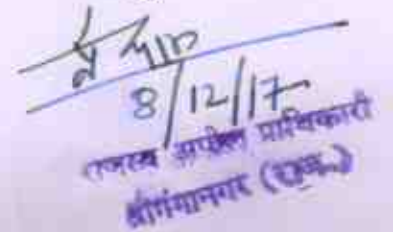 8/12/17
राजस्व अपील प्राधिकारी
श्रीगंगानगर (राज.)